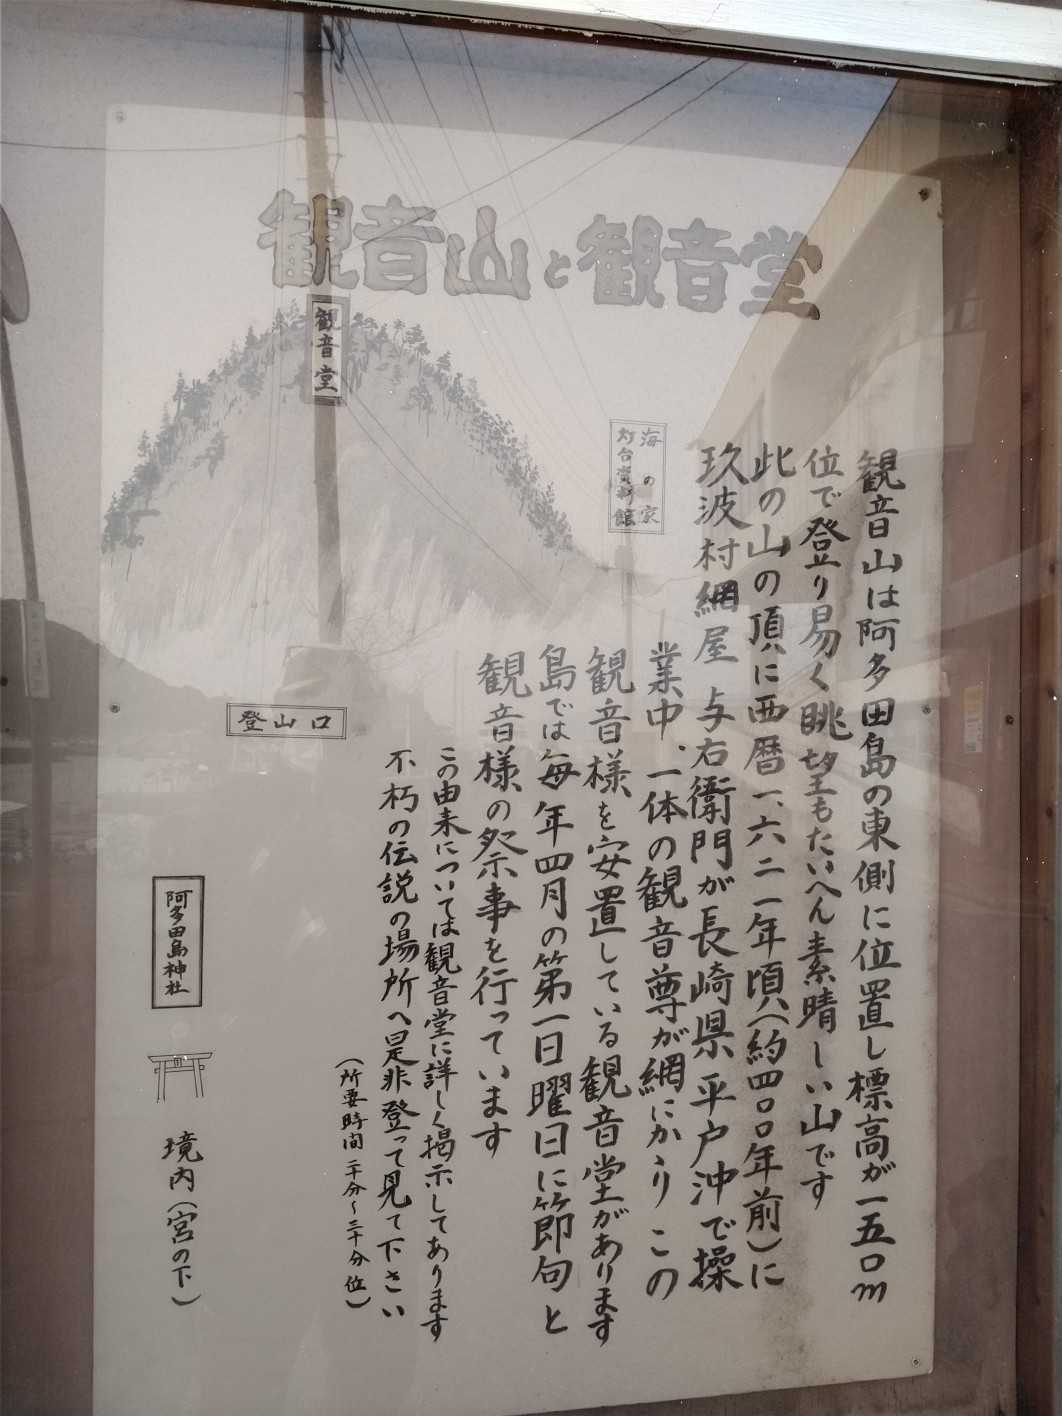 観音山と観音堂
観音堂
海の家
灯台資料館
観音山は阿多田島の東側に位置し標高が一五〇m
位で登り易く眺望もたいへん素晴しい山です
此の山の頂に西暦一、六二一年頃(約四〇〇年前)に
玖波村網屋与右衛門が長崎県平戸沖で操
業中、一体の観音尊が網にかゝりこの
観音様を安置している観音堂があります
島では毎年四月の第一日曜日に節句と
観音様の祭事を行っています
この由来については観音堂に詳しく掲示してあります
不朽の伝説の場所へ是非登って見て下さい
(所要時間 二十分~三十分位)
登山口
阿多田島神社
境内(宮の下)